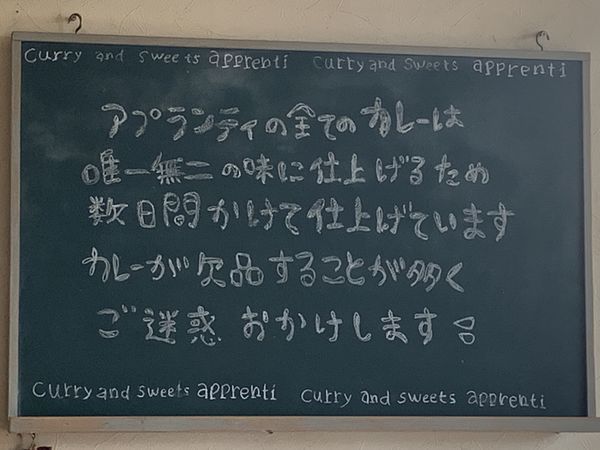 Curry and sweets apprenti Curry and sweets apprenti
アプランティの全てのカレーは
唯一無二の味に仕上げるため
数日間かけて仕上げています
カレーが欠品することが多く
ご迷惑おかけします
Curry and sweets apprenti Curry and sweets apprenti